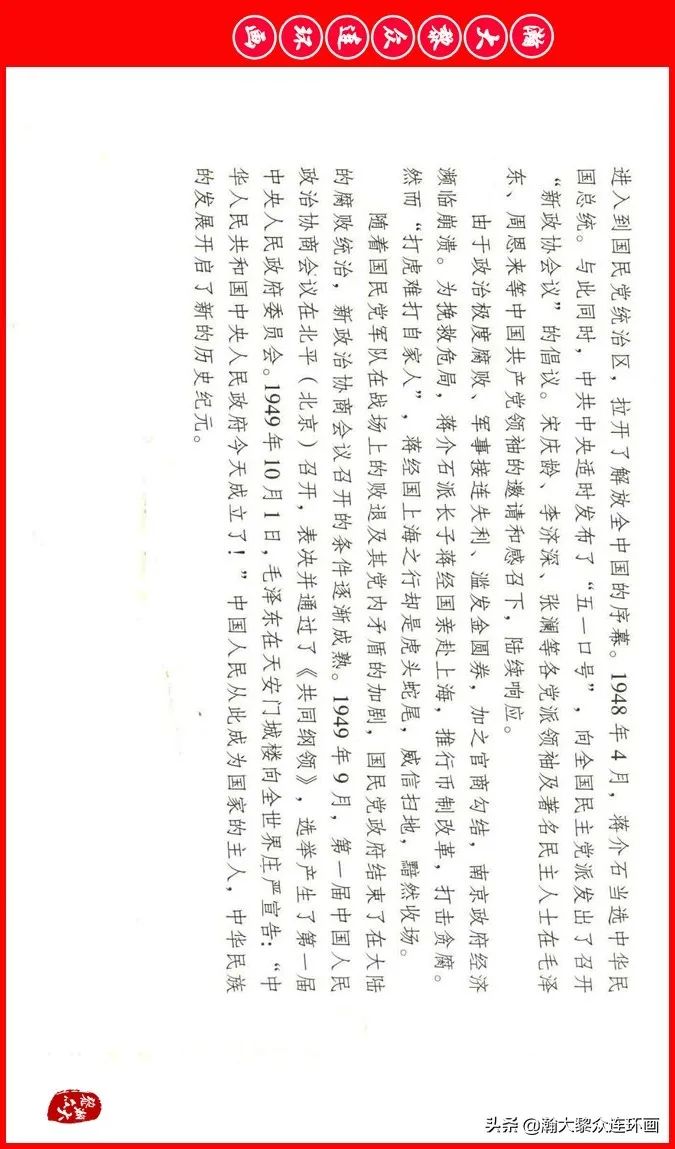 瀚大黎众连环画
进入到国民党统治区，拉开了解放全中国的序幕。1948年4月，蒋介石当选中华民
国总统。与此同时，中共中央适时发布了“五一口号”，向全国民主党派发出了召开
“新政协会议”的倡议。宋庆龄、李济深、张澜等各党派领袖及著名民主人士在毛泽
东、周恩来等中国共产党领袖的邀请和感召下，陆续响应。
由于政治极度腐败、军事接连失利、滥发金圆券，加之官商勾结，南京政府经济
濒临崩溃。为挽救危局，蒋介石派长子蒋经国亲赴上海，推行币制改革，打击贪腐。
然而“打虎难打自家人”，蒋经国上海之行却是虎头蛇尾，威信扫地，黯然收场。
随着国民党军队在战场上的败退及其党内矛盾的加剧，国民党政府结束了在大陆
的腐败统治，新政治协商会议召开的条件逐渐成熟。1949年9月，第一届中国人民
政治协商会议在北平（北京）召开，表决并通过了《共同纲领》，选举产生了第一届
中央人民政府委员会。1949年10月1日，毛泽东在天安门城楼向全世界庄严宣告：“中
华人民共和国中央人民政府今天成立了！”中国人民从此成为国家的主人，中华民族
的发展开启了新的历史纪元。
瀚大黎众
头条 @瀚大黎众连环画